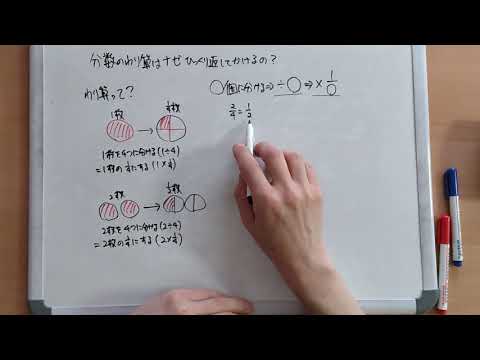 分数のわり算はナゼひっくり返してかけるの?
わり算って?
○個に分ける⇒÷○⇒×1/○
2/4=1/2
1枚
1/4枚
1枚を4つに分ける(1÷4)
=1枚の1/4にする(1×1/4)
2枚
1/2枚
2枚を4つに分ける(2÷4)
=2枚の1/4にする(2×1/4)